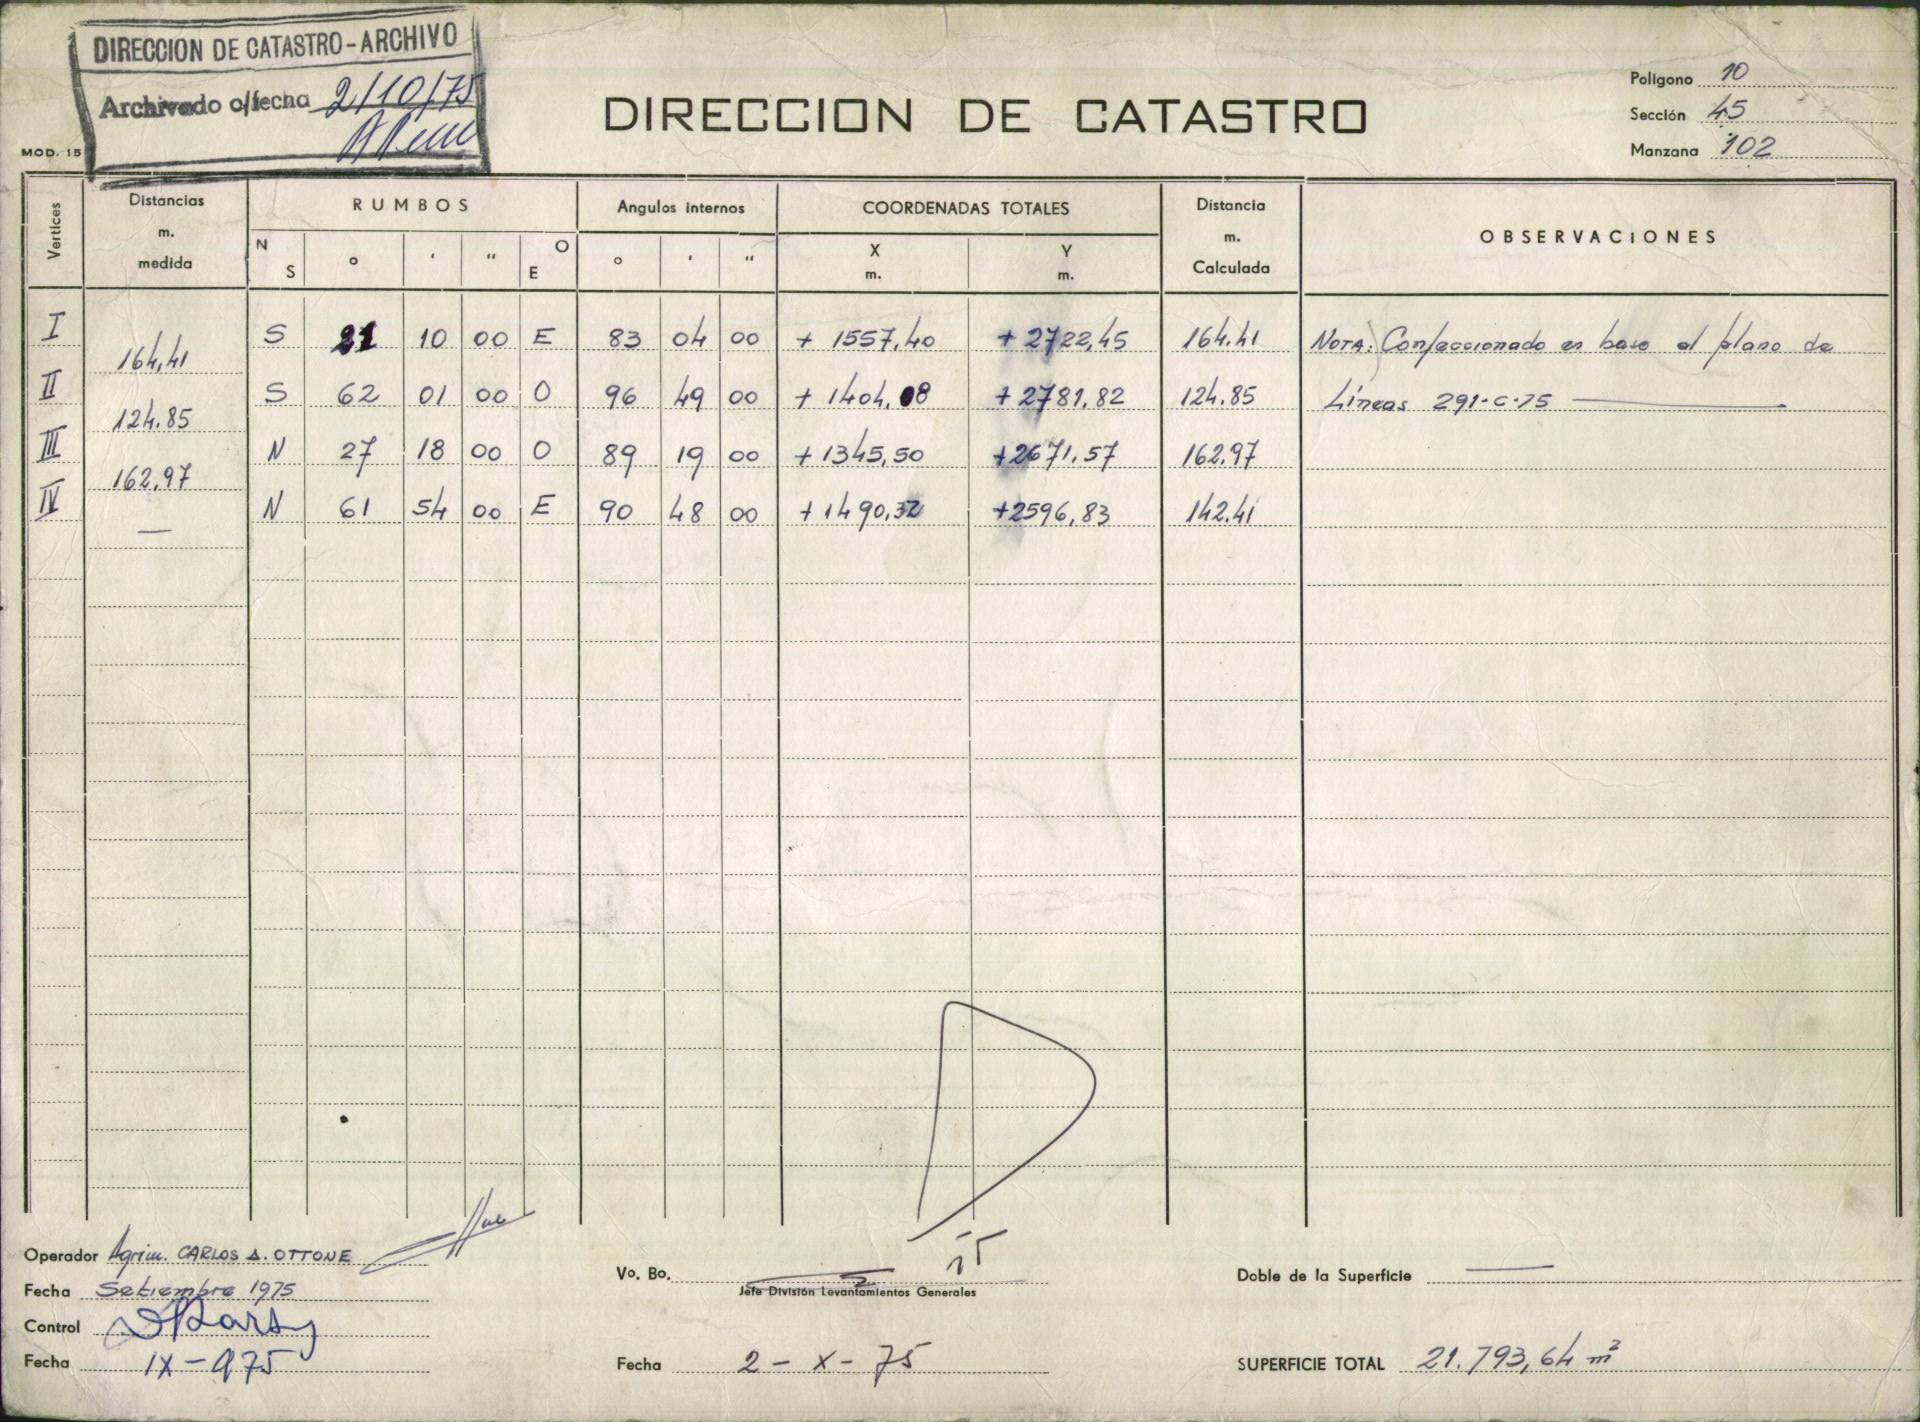 DIRECCION DE CATASTRO-ARCHIVO
Archivado c/fecha 2/10/75
MOD. 15
DIRECCION DE CATASTRO
Polígono 10
Sección 45
Manzana 102
Vertices Distancias m. medida RUMBOS Angulos internos COORDENADAS TOTALES Distancia m. Calculada OBSERVACIONES
N S ° ' " O E ° ' " X m. Y m.
I S 21 10 00 E 83 04 00 + 1557,40 + 2722,45 164.41 NOTA: Confeccionado en base al plano de
164,41
II S 62 01 00 O 96 49 00 + 1404,08 + 2781,82 124.85 Líneas 291-C-75
124.85
III N 27 18 00 O 89 19 00 + 1345,50 +2671.57 162.97
162.97
IV N 61 54 00 E 90 48 00 + 1490,32 +2596,83 142.41
—
Operador Agrim. CARLOS A. OTTONE
Fecha Setiembre 1975
Control
Fecha IX-975
Vo. Bo.
Jefe División Levantamientos Generales
Fecha 2-X-75
Doble de la Superficie —
SUPERFICIE TOTAL 21.793,64 m²